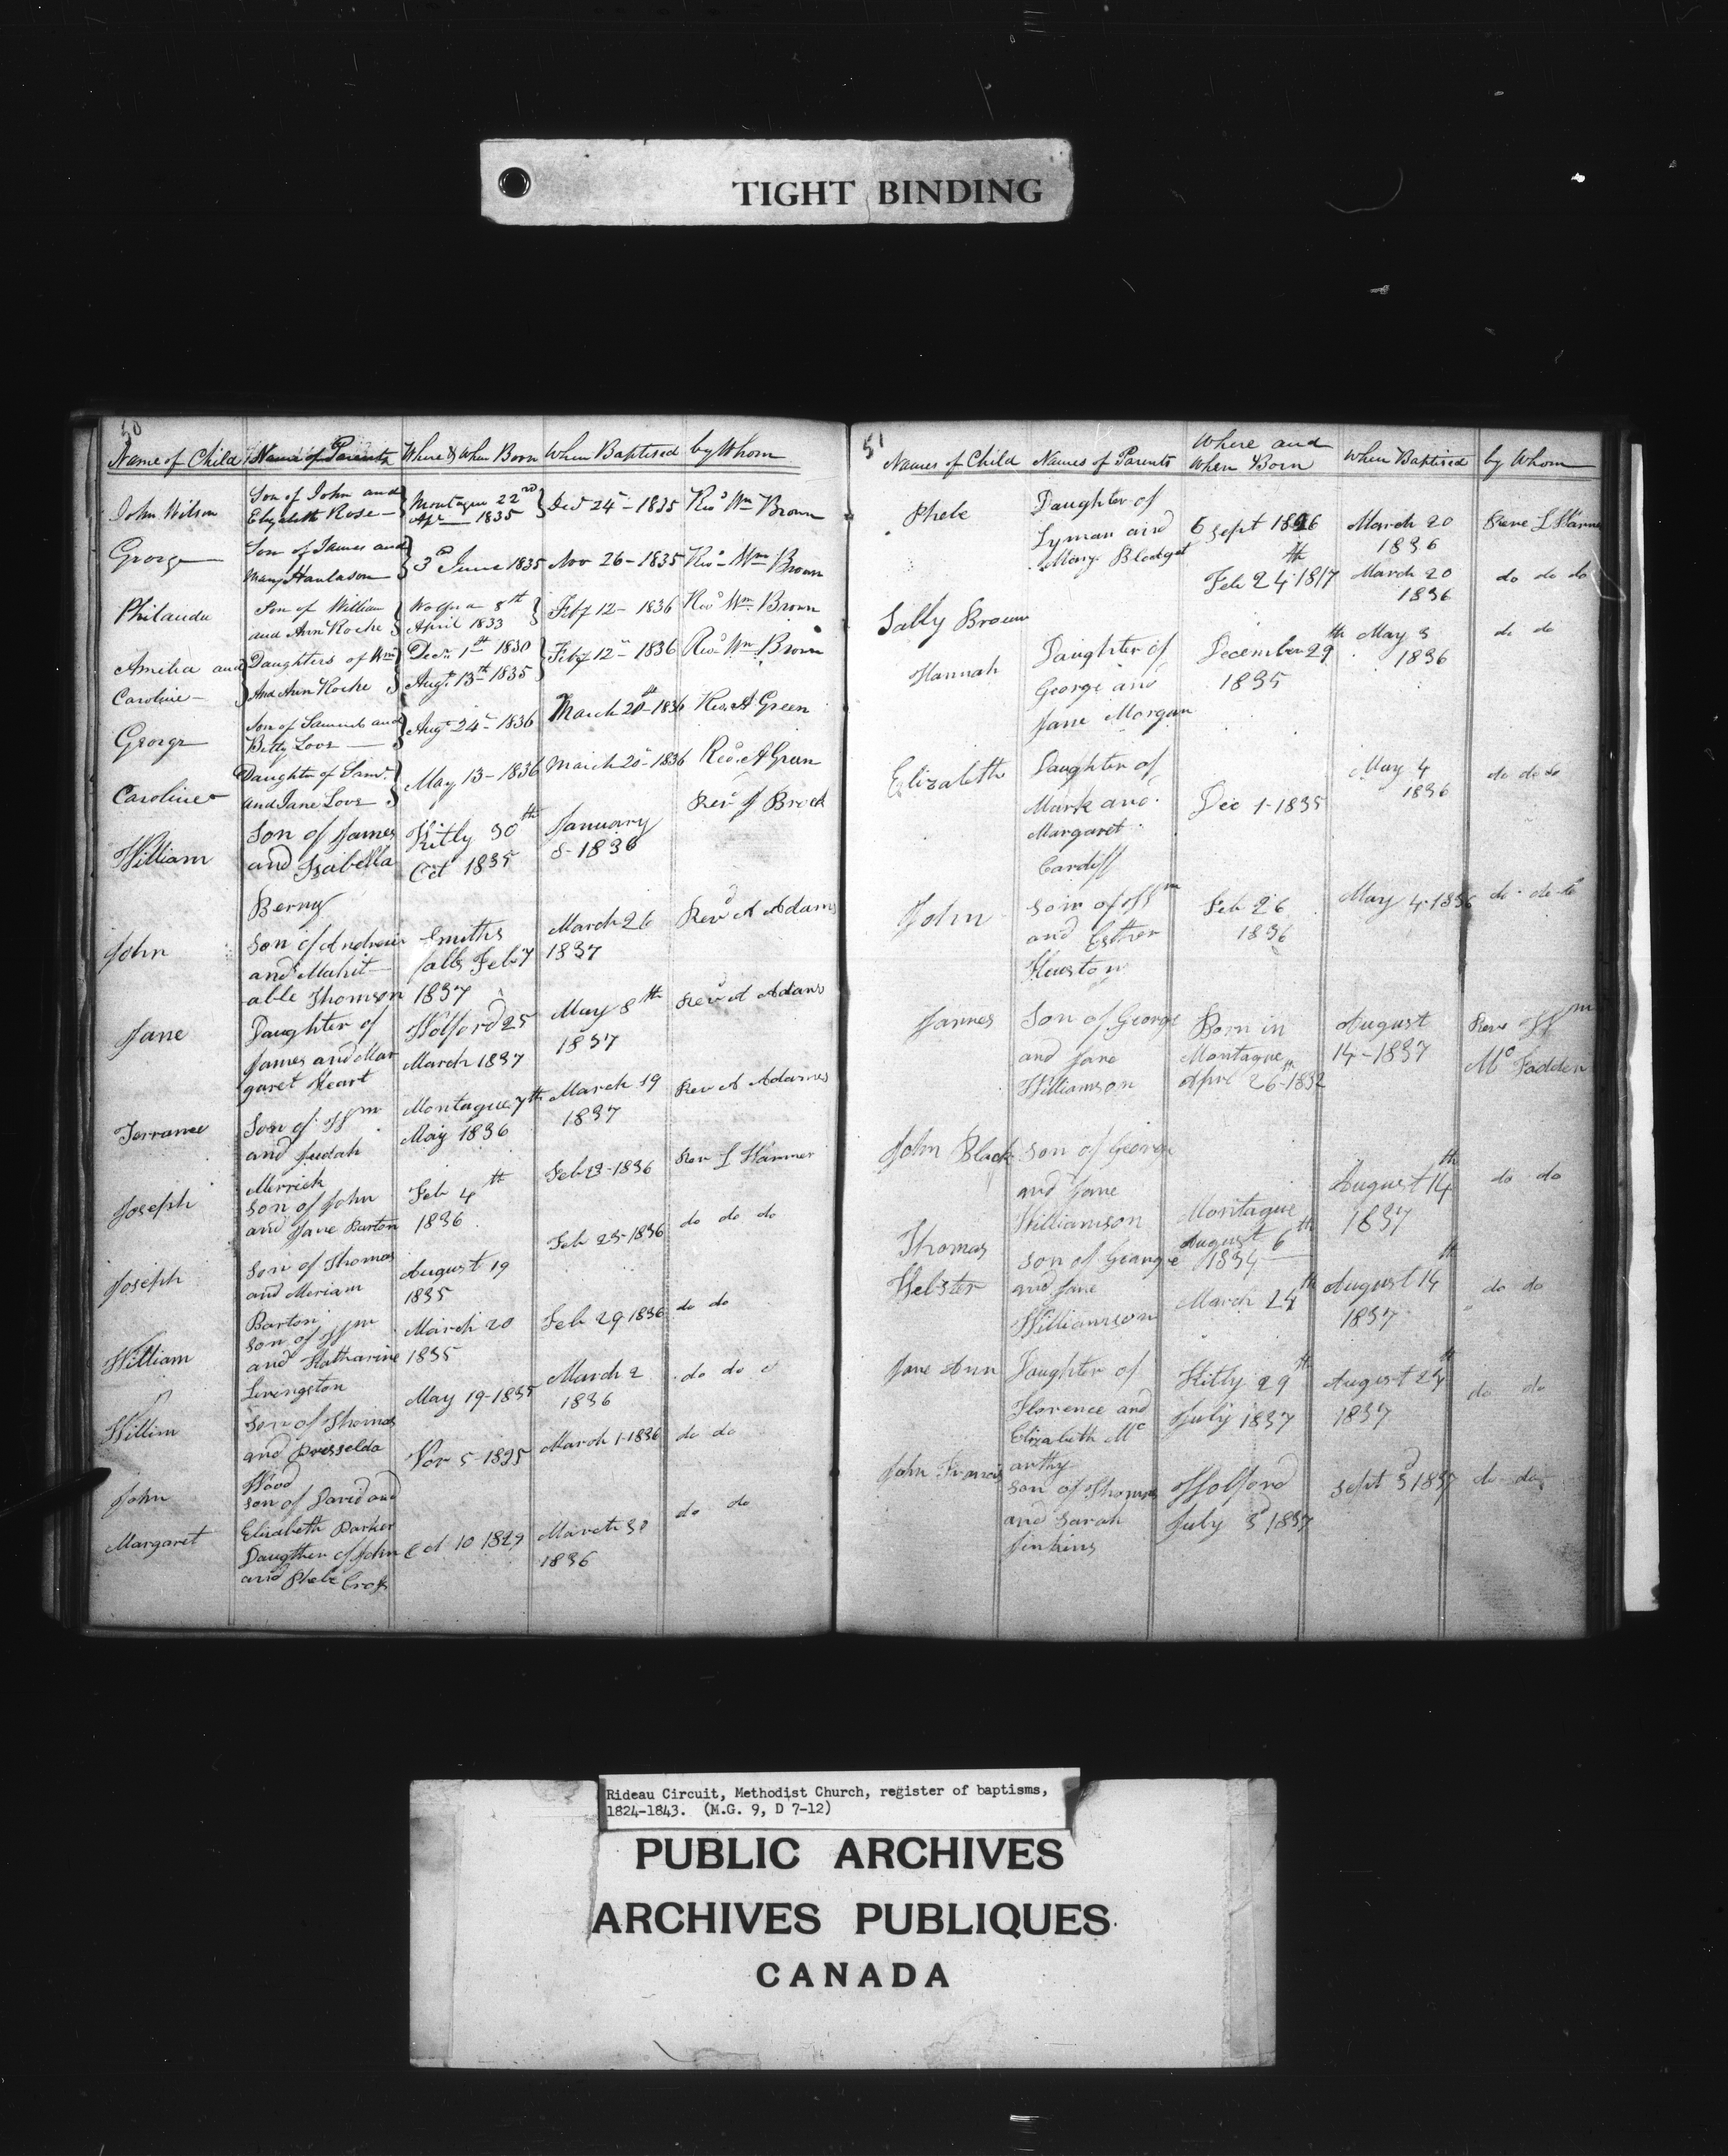 TIGHT BINDING
50
Name of Child Name of Parents Where & When Born When Baptised by Whom
John Wilson Son of John and Elizabeth Rose Montague 22nd Apr 1835 Decr 24 - 1835 Revd Wm Brown
George Son of James and Mary Hanlason 3d June 1835 Nov 26 - 1835 Revd Wm Brown
Philauda Son of William and Ann Roche 8th April 1833 Feby 12 - 1836 Revd Wm Brown
Amelia and Caroline Daughters of Wm And Ann Roche Decr 1st 1830 Augt 13th 1835 Feby 12 - 1836 Revd Wm Brown
George Son of Samuel and Betty Love Augt 24 - 1836 March 20th - 1836 Rev. A Green
Caroline Daughter of Saml and Jane Love May 13 - 1836 March 20 - 1836 Revd. A Green
William Son of James and Isabella Berny Kitly 30th Oct 1835 January 8 - 1836 Revd J Brock
John Son of Andrew and Mahit-able Thomson Smiths falls Feb 7 1837 March 26 1837 Revd A Adams
Jane Daughter of James and Margaret Heart Wolford 25 March 1837 May 8th 1837 Revd A Adams
Torrance Son of Wm and Judah Merrick Montague 7th May 1836 March 19 1837 Rev A Adams
Joseph Son of John and Jane Barton Feb 4th 1836 Feb 23 - 1836 Rev L Warner
Joseph Son of Thomas and Meriam Barton August 19 1835 Feb 25 - 1836 do do do
William Son of Wm and Katharine Livingston March 20 1835 Feb 29 1836 do do
Willim Son of Thomas and Wood May 19 - 1835 March 2 1836 do do
John Son of David and Elizabeth Parker Nov 5 - 1825 March 1 - 1836 do do
Margaret Daugther of John and Phebe Cross Oct 10 1829 March 30 1836 do do
51
Names of Child Names of Parents Where and When Born When Baptised by Whom
Phebe Daughter of Lyman and Mary Blodget 6 Sept 1826 March 20 1836 Reve L Warner
Sally Brown Feb 24th 1817 March 20 1836 do do do
Hannah Daughter of George and Jane Morgan December 29th 1835 May 3 1836 do do
Elizabeth Daughter of Mark and Margaret Cardiff Dec 1 - 1835 May 4 1836 do do do
John Son of Wm and Esther Huston Feb 26 1836 May 4 - 1836 do do do
James Son of George and Jane Williamson Born in Montague Apri 26th - 1832 August 14 - 1837 Reve Wm Mc Fadden
John Black Son of George and Jane Williamson Montague August 6th 1834 August 14th 1837 do do
Thomas Webster Son of George and Jane Williamson March 24th August 14th 1837 do do
Jane Ann Daughter of Florence and Elizabeth Mc arthy Kitly 29th July 1837 August 24th 1837 do do
John Francis Son of Thomas and Sarah Jinkins Wolford July 3d 1837 Sept 3d 1837 do do
Rideau Circuit, Methodist Church, register of baptisms,
1824-1843. (M.G. 9, D 7-12)
PUBLIC ARCHIVES
ARCHIVES PUBLIQUES
CANADA